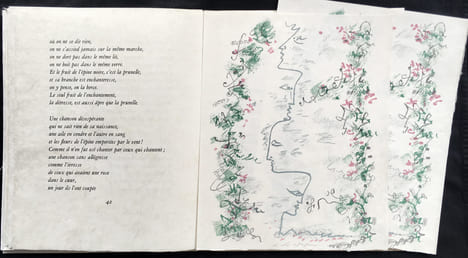 où on ne se dit rien,
on ne s'assied jamais sur la même marche,
on ne dort pas dans le même lit,
on ne boit pas dans le même verre.
Et le fruit de l'épine noire, c'est la prunelle,
et sa branche est enchanteresse,
on y pense, on la berce.
Le seul fruit de l'enchantement,
la détresse, est aussi âpre que la prunelle.
Une chanson désespérante
qui ne sait rien de sa naissance,
une aile en cendre et l'autre en sang
et les fleurs de l'épine emportées par le vent!
Comme il n'en fut est chanter par ceux qui chantent;
une chanson sans allégresse
comme l'ivresse
de ceux qui avaient une rose
dans le cœur,
un jour ils l'ont coupée
42